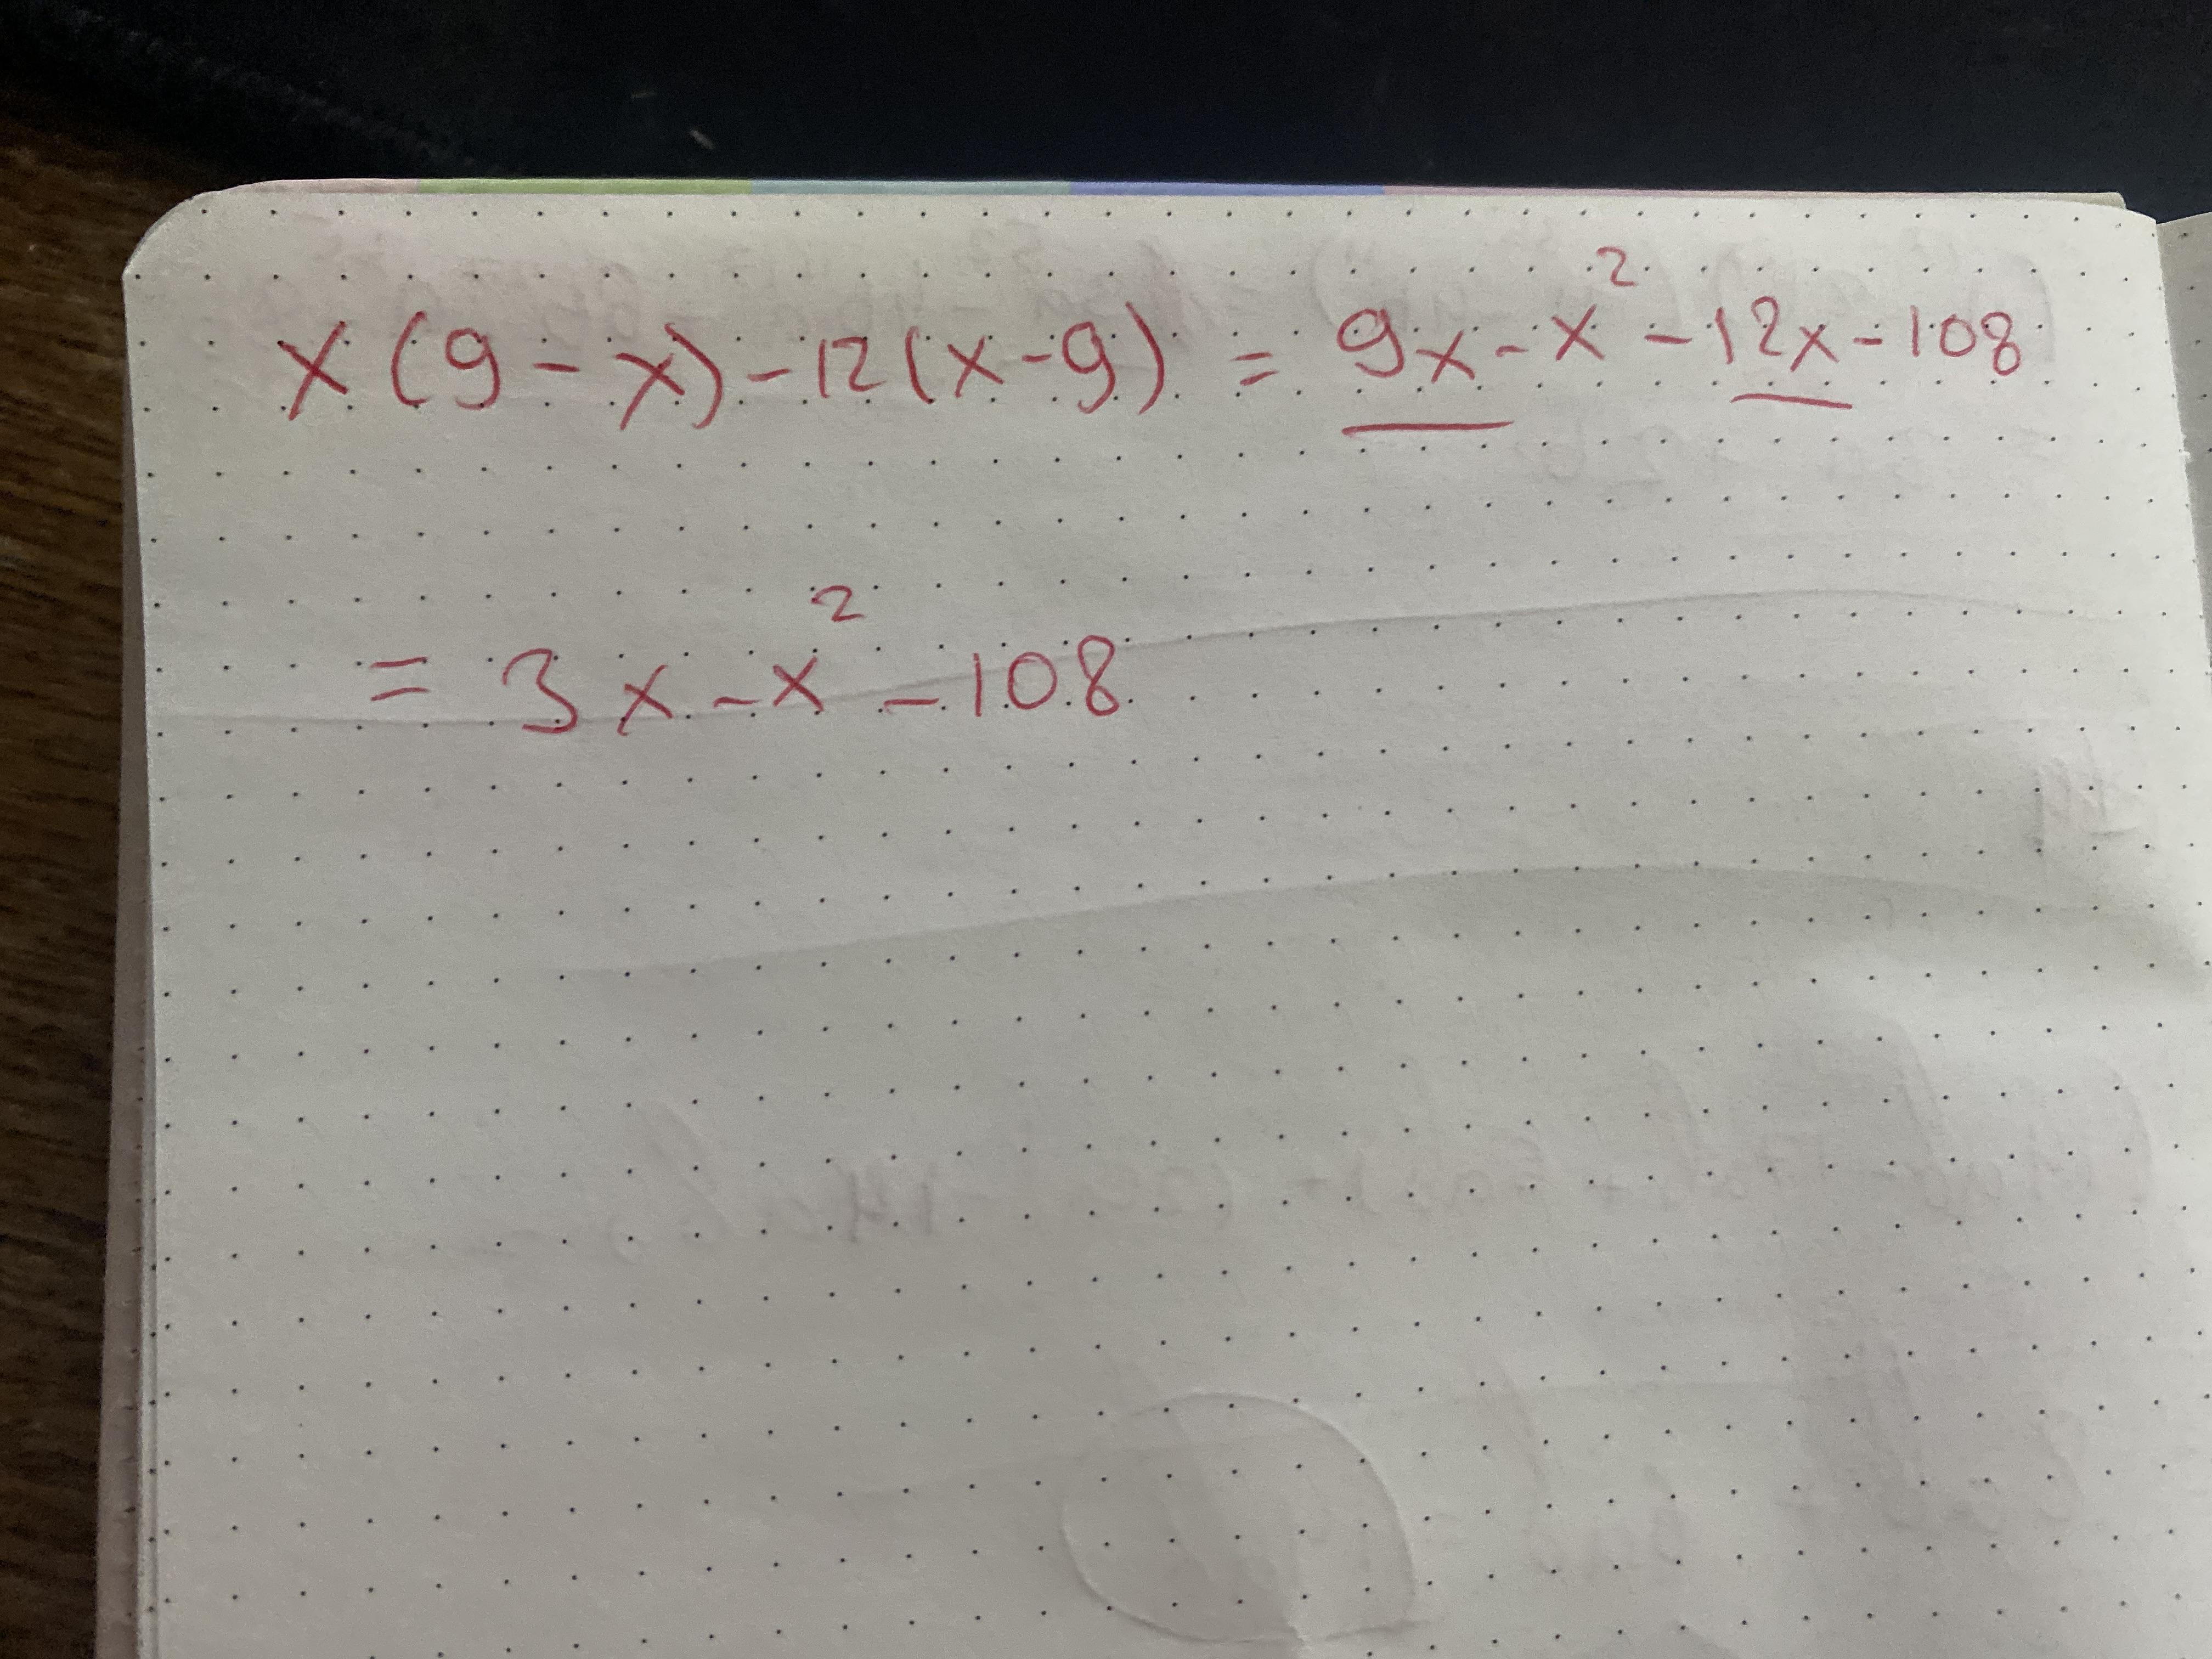 x(9-x)-12(x-9) = 9x-x²-12x-108
= 3x-x²-108